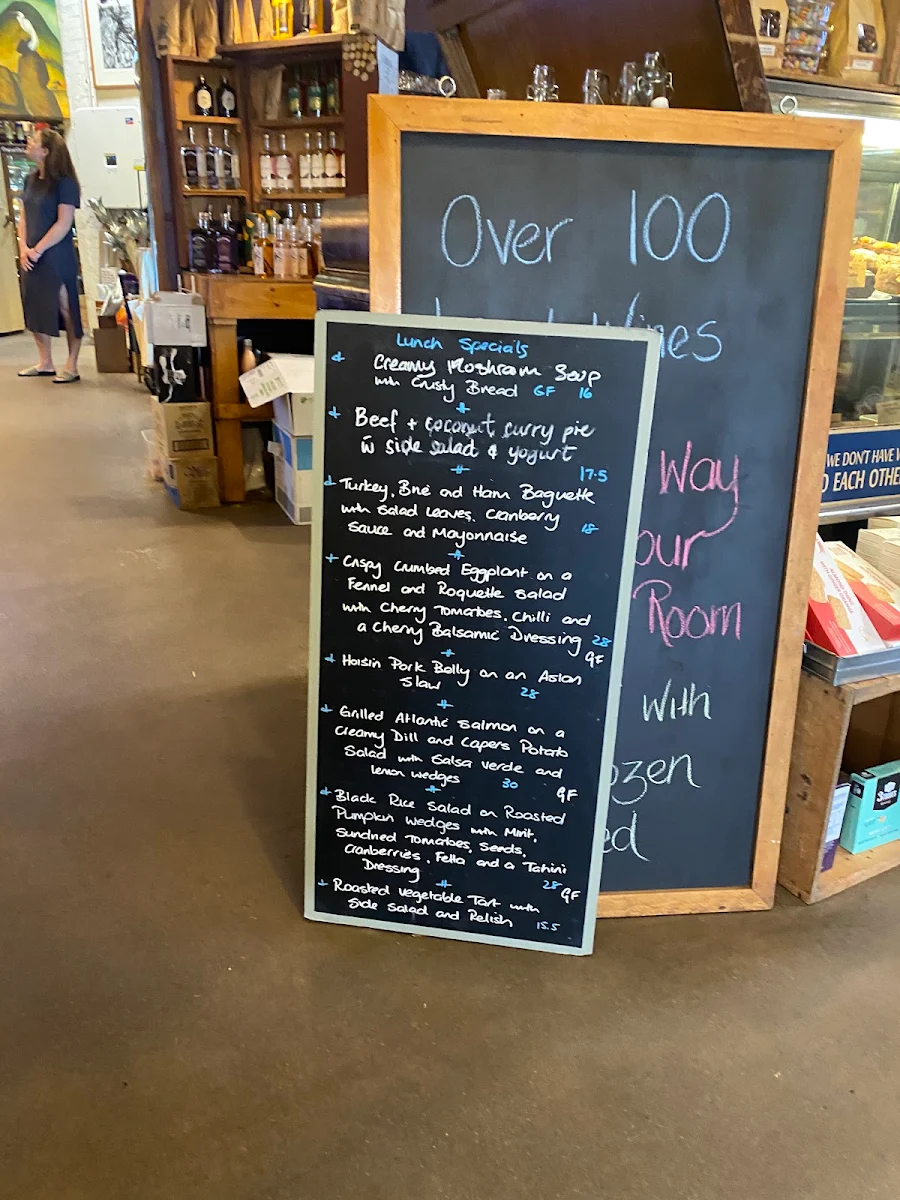 Over 100
Wines
Way
our
Room
With
ozen
ed
Lunch Specials
Creamy Moshroom Soup
with Crusty Bread GF 16
Beef + coconut curry pie
w side salad & yogurt
17.5
Turkey, Brie and Ham Baguette
with Salad leaves, Cranberry
Sauce and Mayonnaise 18
Crispy Crumbed Eggplant on a
Fennel and Roquette Salad
with Cherry Tomatoes, Chilli and
a Cherry Balsamic Dressing 28
GF
Hoisin Pork Belly on an Asian
Slaw 28
Grilled Atlantic Salmon on a
Creamy Dill and Capers Potato
Salad with Salsa Verde and
lemon wedges 30 GF
Black Rice Salad on Roasted
Pumpkin Wedges with Mint,
Sundried Tomatoes, Seeds,
Cranberries, Fetta and a Tahini
Dressing 28 GF
Roasted Vegetable Tart with
Side Salad and Relish 15.5
WE DON'T HAVE
EACH OTHE